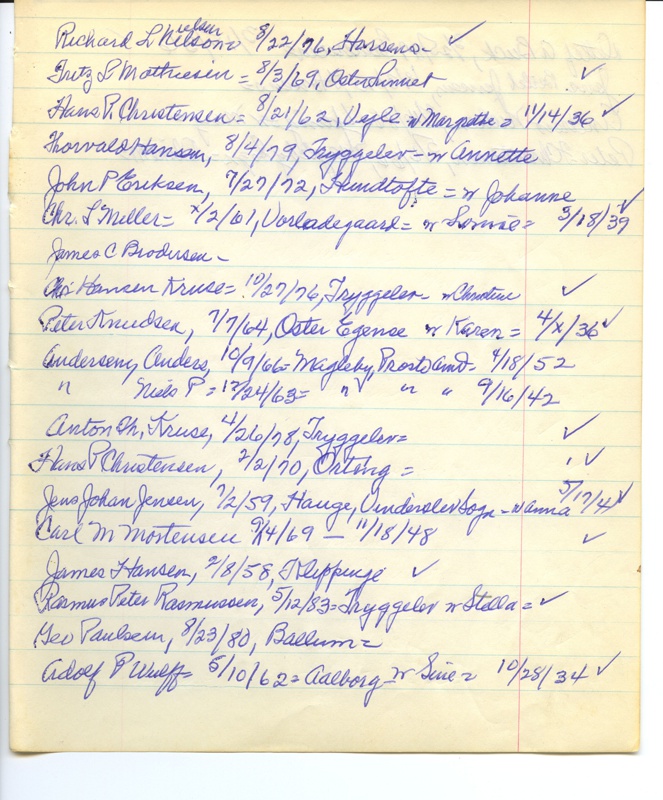 Richard L Nelson Nielsen 8/22/76, Horsens - ✓
Fritz L Mathiesen = 8/3/69, Oster ✓
Hans P. Christensen = 8/21/62, Vejle w Margrethe = 11/14/36 ✓
Thorvald Hansen, 8/4/79, Tryggelev - w Annette
John P Eriksen, 7/27/72, Hundtofte = w Johanne
Chr. L Miller = 2/61, Vorladegaard = w = 3/18/39 ✓
James C Brodersen -
Chr Hansen Kruse = 10/27/76, Tryggelev - w Christine ✓
Peter Knudsen, 7/7/64, Oster Egense w Karen = 4/x/36 ✓
Andersen, Anders, 10/9/66 = Magleby, Prosto Amt - 4/18/52
" Niels P = 12/24/63 = " " " 9/16/42
Anton Th. Kruse, 4/26/78, Tryggelev = ✓
Hans P Christensen, 2/2/70, Orting = ✓
Jens Johan Jensen, 7/2/59, Hauge, Vinderslev Sogn - w Anna 5/17/41 ✓
Carl M Mortensen 4/69 - 11/18/48 ✓
James Hansen, 2/8/58, Klippinge ✓
Rasmus Peter Rasmussen, 5/12/83 = Tryggelev w Stella = ✓
Geo Paulsen, 8/23/80, Ballum =
Adolf P Wulff = 5/10/62 = Aalborg - w Sine = 10/28/34 ✓